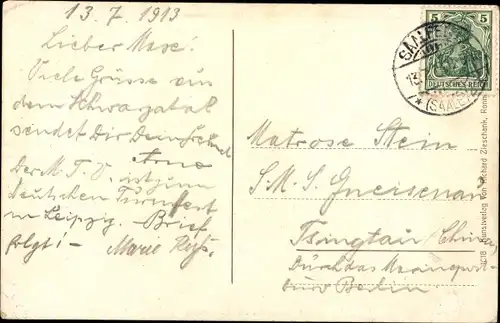 13.7.1913
Lieber Max!
Viele Grüsse aus
dem Schwarzatal
sendet Dir Dein Freund
Arno
Der M.T.V. ist zum
deutschen Turnfest
in Leipzig. Brief
folgt! Marie
5 5
DEUTSCHES REICH
SAALFELD
(SAALE)
Matrose Stein
S.M.S. Gneisenau
Tsingtau (China)
Durch das Marinepost-
büro Berlin.
Kunstverlag von Richard Zieschank,